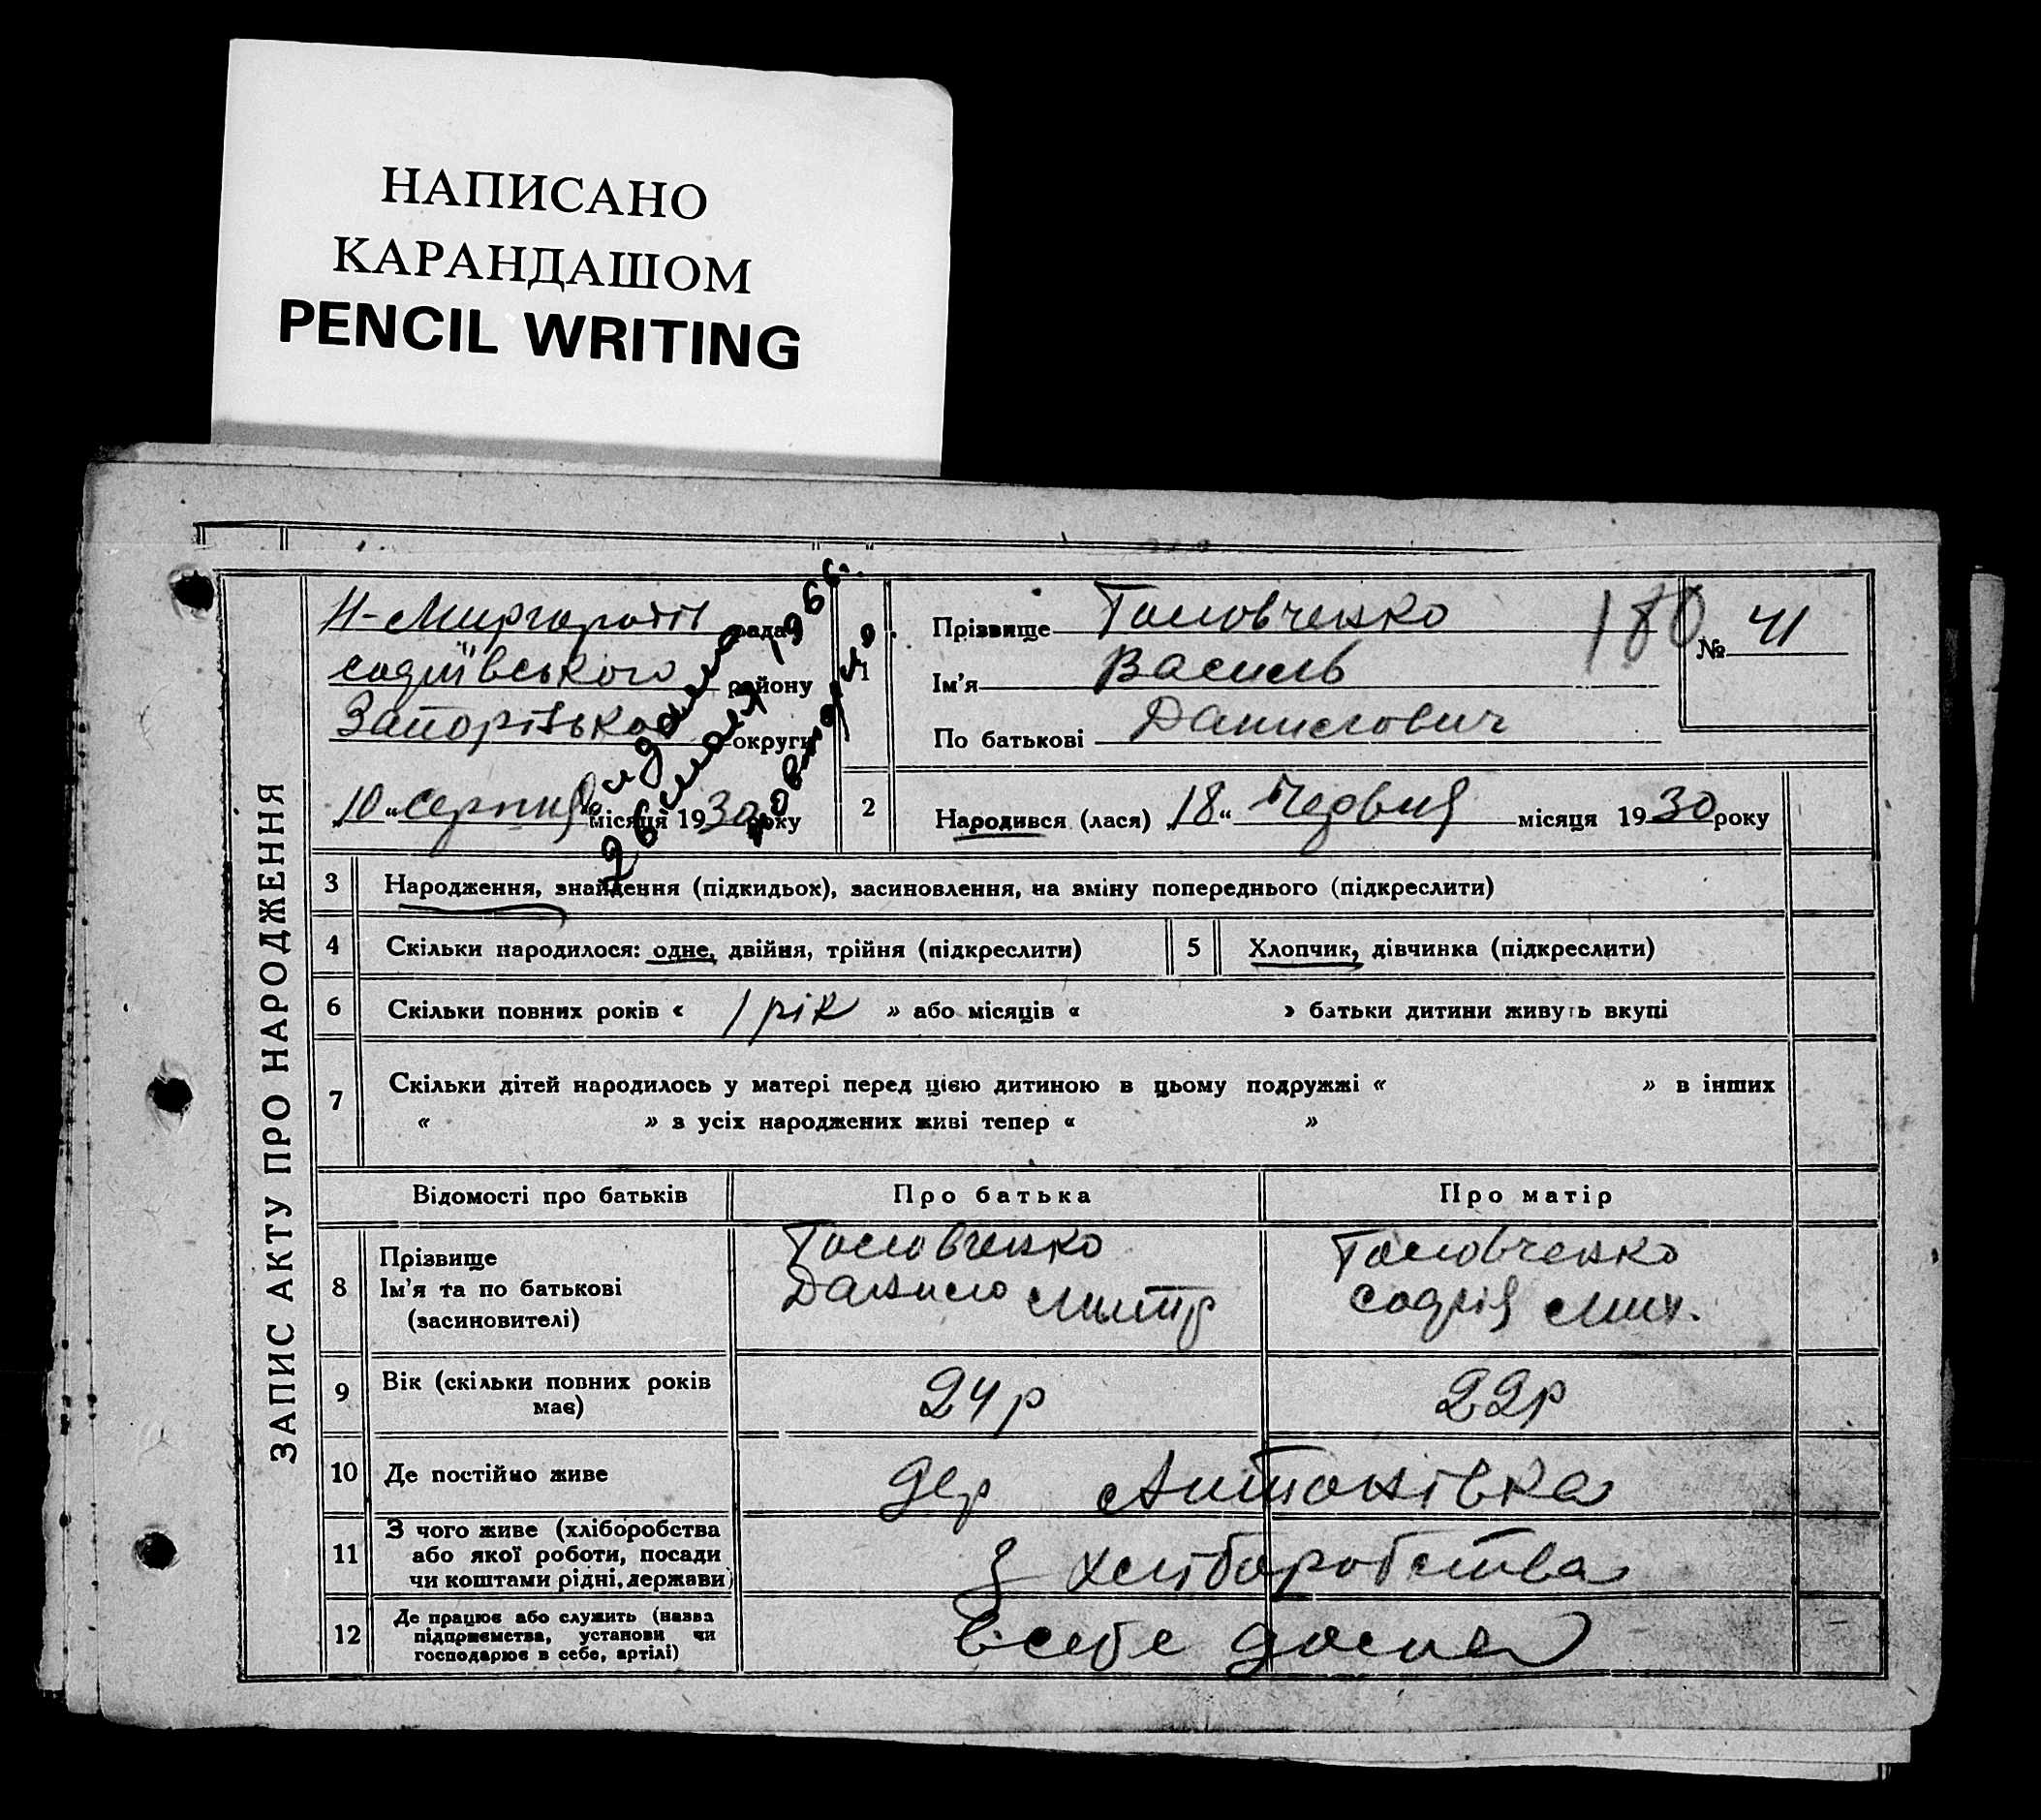 НАПИСАНО
КАРАНДАШОМ
PENCIL WRITING
ЗАПИС АКТУ ПРО НАРОДЖЕННЯ
Н-Миргород рада
софіївського району
Запорізької округи
„10“ серпня місяця 1930 року
видано
26 мая 1966.
повторно
1
Прізвище Головченко
Ім'я Василь
По батькові Данилович
180
№ 41
2 Народився (лася) „18“ Червня місяця 1930 року
3 Народження, знайдення (підкидьох), засиновлення, на зміну попереднього (підкреслити)
4 Скільки народилося: одне, двійня, трійня (підкреслити) 5 Хлопчик, дівчинка (підкреслити)
6 Скільки повних років « 1 рік » або місяців « » батьки дитини живуть вкупі
7 Скільки дітей народилось у матері перед цією дитиною в цьому подружжі « » в інших
« » з усіх народжених живі тепер « »
Відомості про батьків Про батька Про матір
8 Прізвище
Ім'я та по батькові
(засиновителі)
Головченко
Данило Митр
Головченко
Софія Мих.
9 Вік (скільки повних років
має)
24р 22р
10 Де постійно живе дер Антонівка
11 З чого живе (хліборобства
або якої роботи, посади
чи коштами рідні, держави)
З хліборобства
12 Де працює або служить (назва
підприємства, установи чи
господарює в себе, артілі)
в себе дома